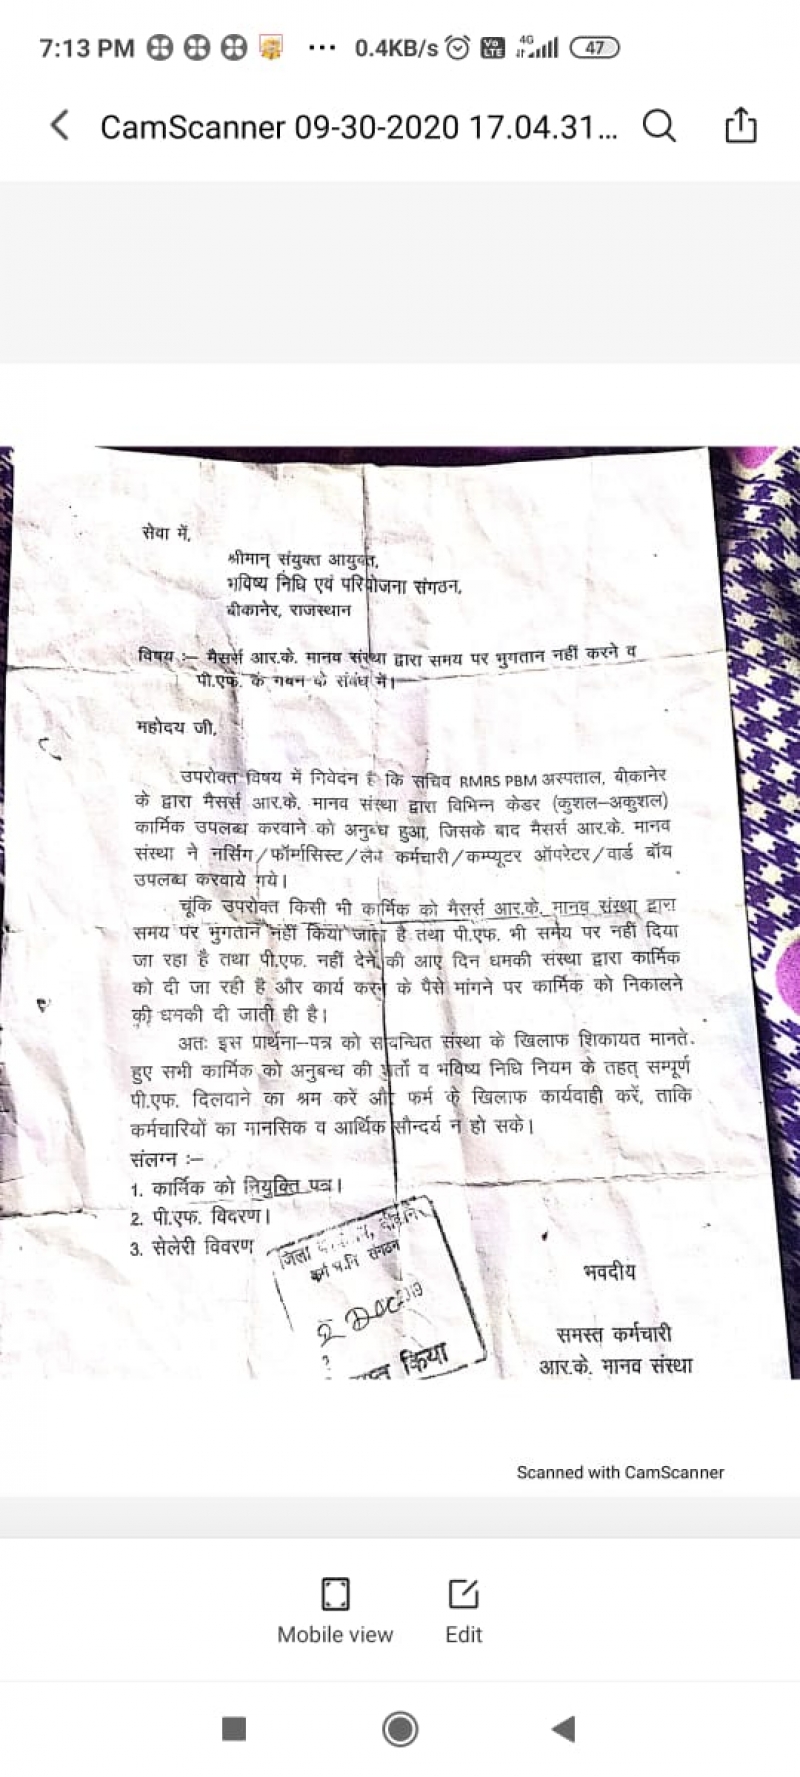 7:13 PM ... 0.4KB/s Vo LTE 4G 47
CamScanner 09-30-2020 17.04.31...
सेवा में,
श्रीमान् संयुक्त आयुक्त,
भविष्य निधि एवं परियोजना संगठन,
बीकानेर, राजस्थान
विषय :– मैसर्स आर.के. मानव संस्था द्वारा समय पर भुगतान नहीं करने व
पी.एफ. के गबन के संबंध में।
महोदय जी,
उपरोक्त विषय में निवेदन है कि सचिव RMRS PBM अस्पताल, बीकानेर
के द्वारा मैसर्स आर.के. मानव संस्था द्वारा विभिन्न केडर (कुशल–अकुशल)
कार्मिक उपलब्ध करवाने को अनुबंध हुआ, जिसके बाद मैसर्स आर.के. मानव
संस्था ने नर्सिग/फॉर्मासिस्ट/लैब कर्मचारी/कम्प्यूटर ऑपरेटर/वार्ड बॉय
उपलब्ध करवाये गये।
चूंकि उपरोक्त किसी भी कार्मिक को मैसर्स आर.के. मानव संस्था द्वारा
समय पर भुगतान नहीं किया जाता है तथा पी.एफ. भी समय पर नहीं दिया
जा रहा है तथा पी.एफ. नहीं देने की आए दिन धमकी संस्था द्वारा कार्मिक
को दी जा रही है और कार्य करने के पैसे मांगने पर कार्मिक को निकालने
की धमकी दी जाती ही है।
अतः इस प्रार्थना–पत्र को संबन्धित संस्था के खिलाफ शिकायत मानते.
हुए सभी कार्मिक को अनुबन्ध की शर्तो व भविष्य निधि नियम के तहत् सम्पूर्ण
पी.एफ. दिलवाने का श्रम करें और फर्म के खिलाफ कार्यवाही करें, ताकि
कर्मचारियों का मानसिक व आर्थिक सौन्दर्य न हो सके।
संलग्न :–
1. कार्मिक को नियुक्ति पत्र।
2. पी.एफ. विवरण।
3. सेलेरी विवरण
जिला
संगठन
2 DEC
किया
भवदीय
समस्त कर्मचारी
आर.के. मानव संस्था
Scanned with CamScanner
Mobile view Edit